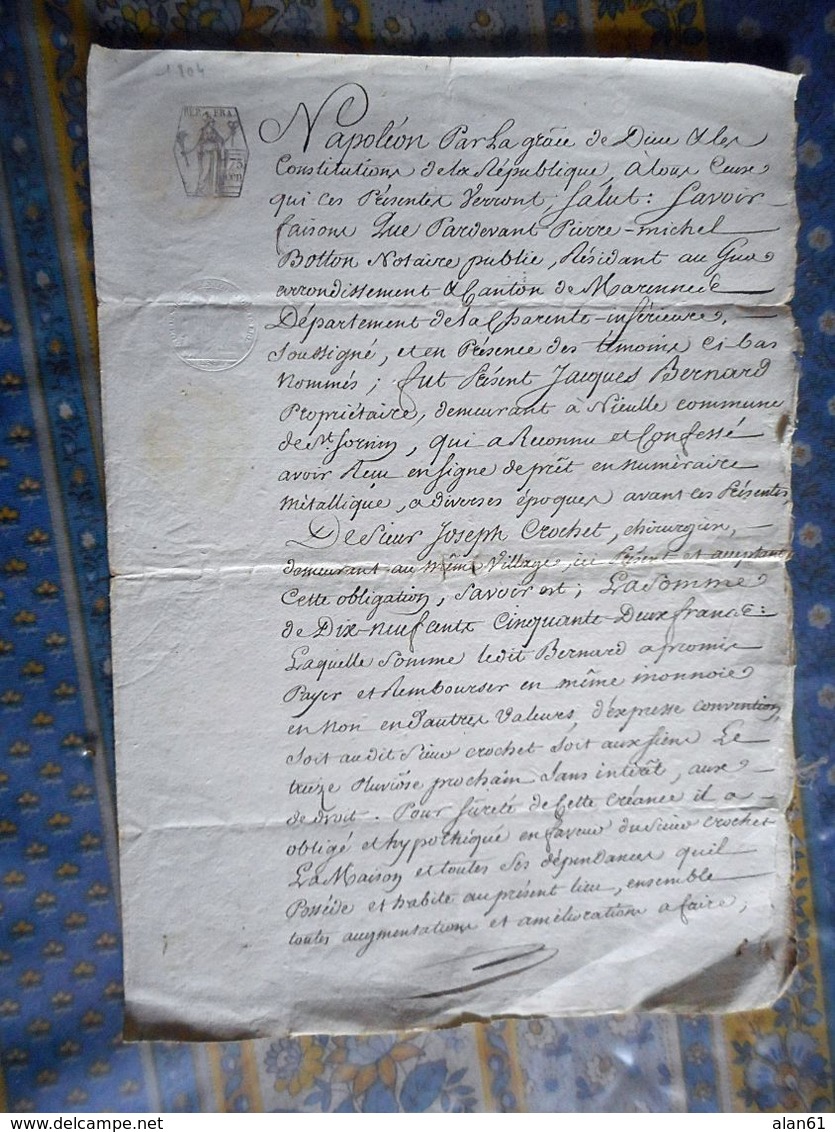 1804
REP. FRA.
75
Napoléon Par La grâce de Dieu & les
Constitutions de la République, à tous Ceux
qui ces Présentes Verront, Salut: Savoir
faisons Que Pardevant Pierre-michel
Botton Notaire public, Résidant au Gua
arrondissement & Canton de Marennes
Département de la Charente-inférieure,
Soussigné, et en Présence des témoins ci bas
Nommés; fut Présent Jacques Bernard
Propriétaire, demeurant à Nieulle commune
de St. Sornin, qui a Reconnu et Confessé
avoir Reçu en signe de prêt en numéraire
métallique, a diverses époques avant ces Présentes
De Sieur Joseph Crochet, chirurgien,
demeurant au même Village, ici Présent et acceptant
Cette obligation, Savoir est; La Somme
de Dix-neuf cents Cinquante Deux francs:
Laquelle Somme ledit Bernard a promis
Payer et Rembourser en même monnoie
en Non en D'autres Valeurs, d'expresse convention,
soit audit Sieur Crochet soit aux siens Le
treize Pluviôse prochain Sans intérêt, aux
de droit. Pour Sûreté de Cette Créance il a
obligé et hypothéqué en faveur du Sieur Crochet
La Maison et toutes Ses dépendances qu'il
Possède et habite au présent lieu, ensemble
toutes augmentations et améliorations a faire,
alan61